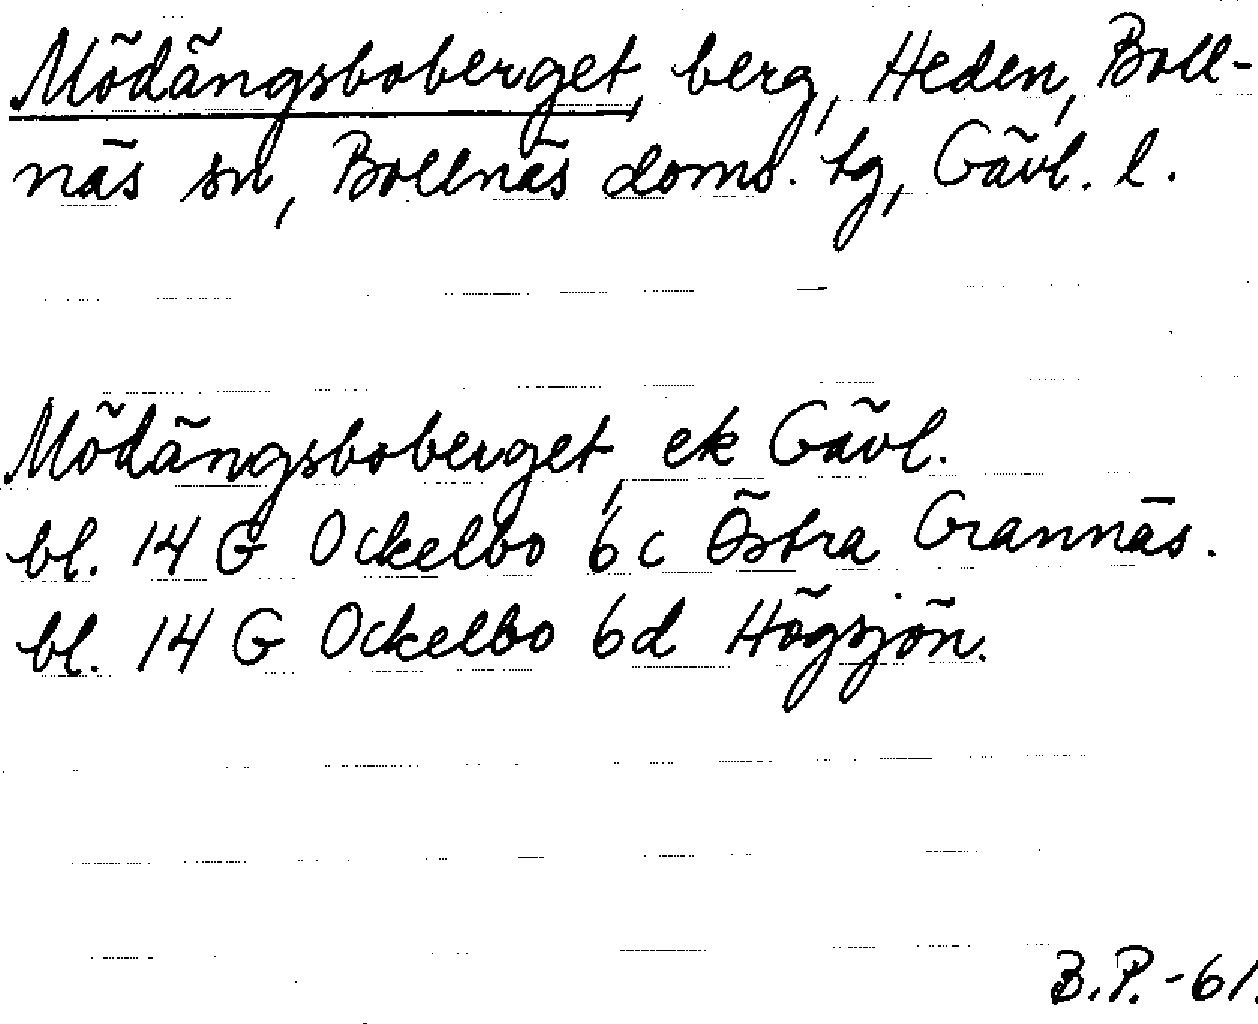 Mödängsboberget, berg, Heden, Boll-
näs sn, Bollnäs doms. tg, Gävl. l.
Mödängsboberget, ek Gävl.
bl. 14 G Ockelbo 6c Östra Grannäs.
bl. 14 G Ockelbo 6d Högsjön.
B.P.-61.